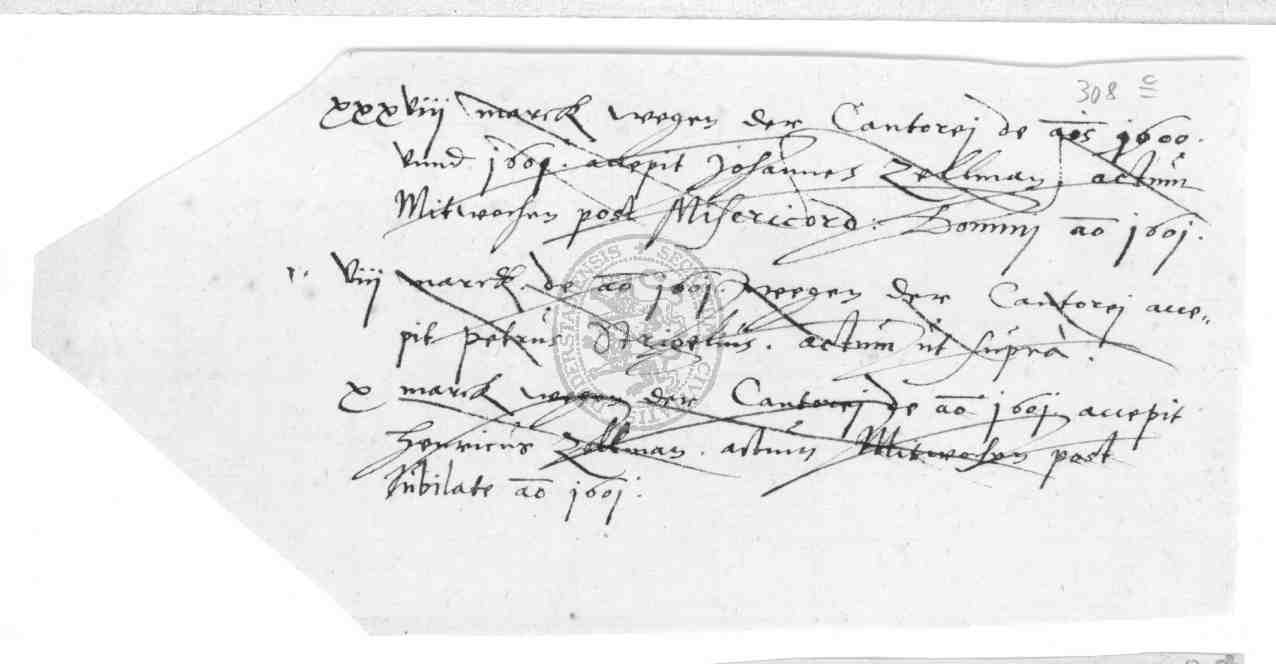 308 c
xxxviij marck wegen der Cantorej de aōs 1600.
vnnd 1601. accepit Johannes Zellman. actum
Mitwochen post Misericord: Domini aō 1601.
viij marck de aō 1601. wegen der Cantorej acce-
pit Petrus Strigelius. actum ut supra.
x marck wegen der Cantorej de aō 1601 accepit
Henricus Zellman. actum Mitwochen post
Jubilate aō 1601.